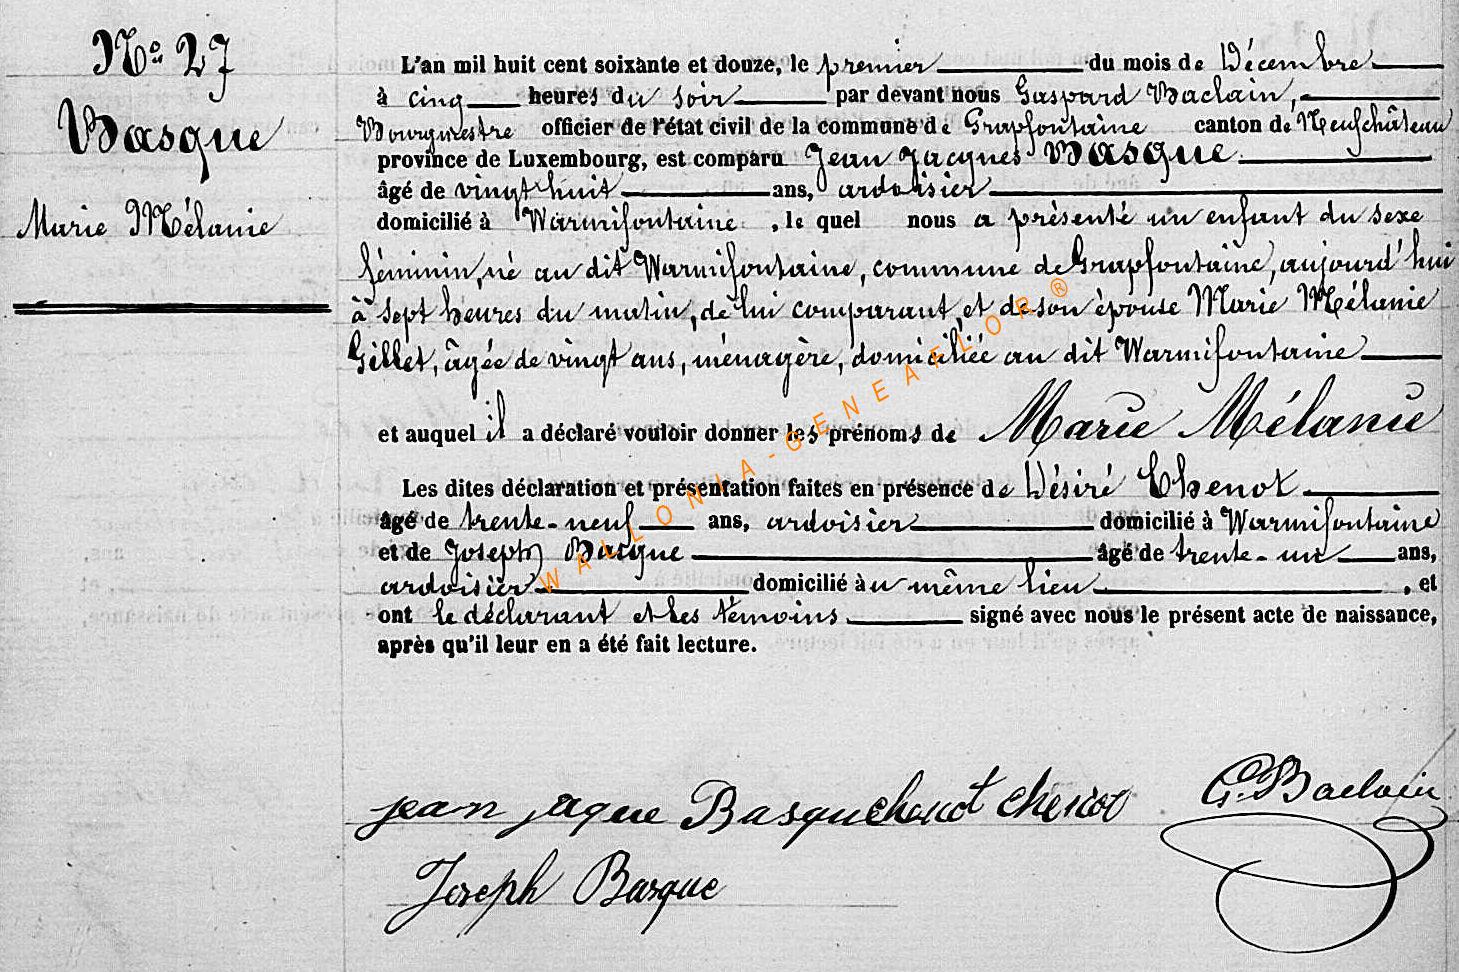 N.o 27
Basque
Marie Mélanie
L'an mil huit cent soixante et douze, le premier du mois de Décembre
à cinq heures du soir par devant nous Gaspard Baclain,
Bourgmestre officier de l'état civil de la commune de Grapfontaine canton de Neufchâteau
province de Luxembourg, est comparu Jean Jacques Basque
âgé de vingt huit ans, ardoisier
domicilié à Warmifontaine, le quel nous a présenté un enfant du sexe
féminin, né au dit Warmifontaine, commune de Grapfontaine, aujourd'hui
à sept heures du matin, de lui comparant, et de son épouse Marie Mélanie
Gillet, âgée de vingt ans, ménagère, domiciliée au dit Warmifontaine
et auquel il a déclaré vouloir donner les prénoms de Marie Mélanie
Les dites déclaration et présentation faites en présence de Désiré Chenot
âgé de trente-neuf ans, ardoisier domicilié à Warmifontaine
et de Joseph Basque âgé de trente-un ans,
ardoisier domicilié au même lieu, et
ont le déclarant et les témoins signé avec nous le présent acte de naissance,
après qu'il leur en a été fait lecture.
WALLONIA-GENEAFLOR®
jean jaque Basque chenot G. Baclain
Joseph Basque